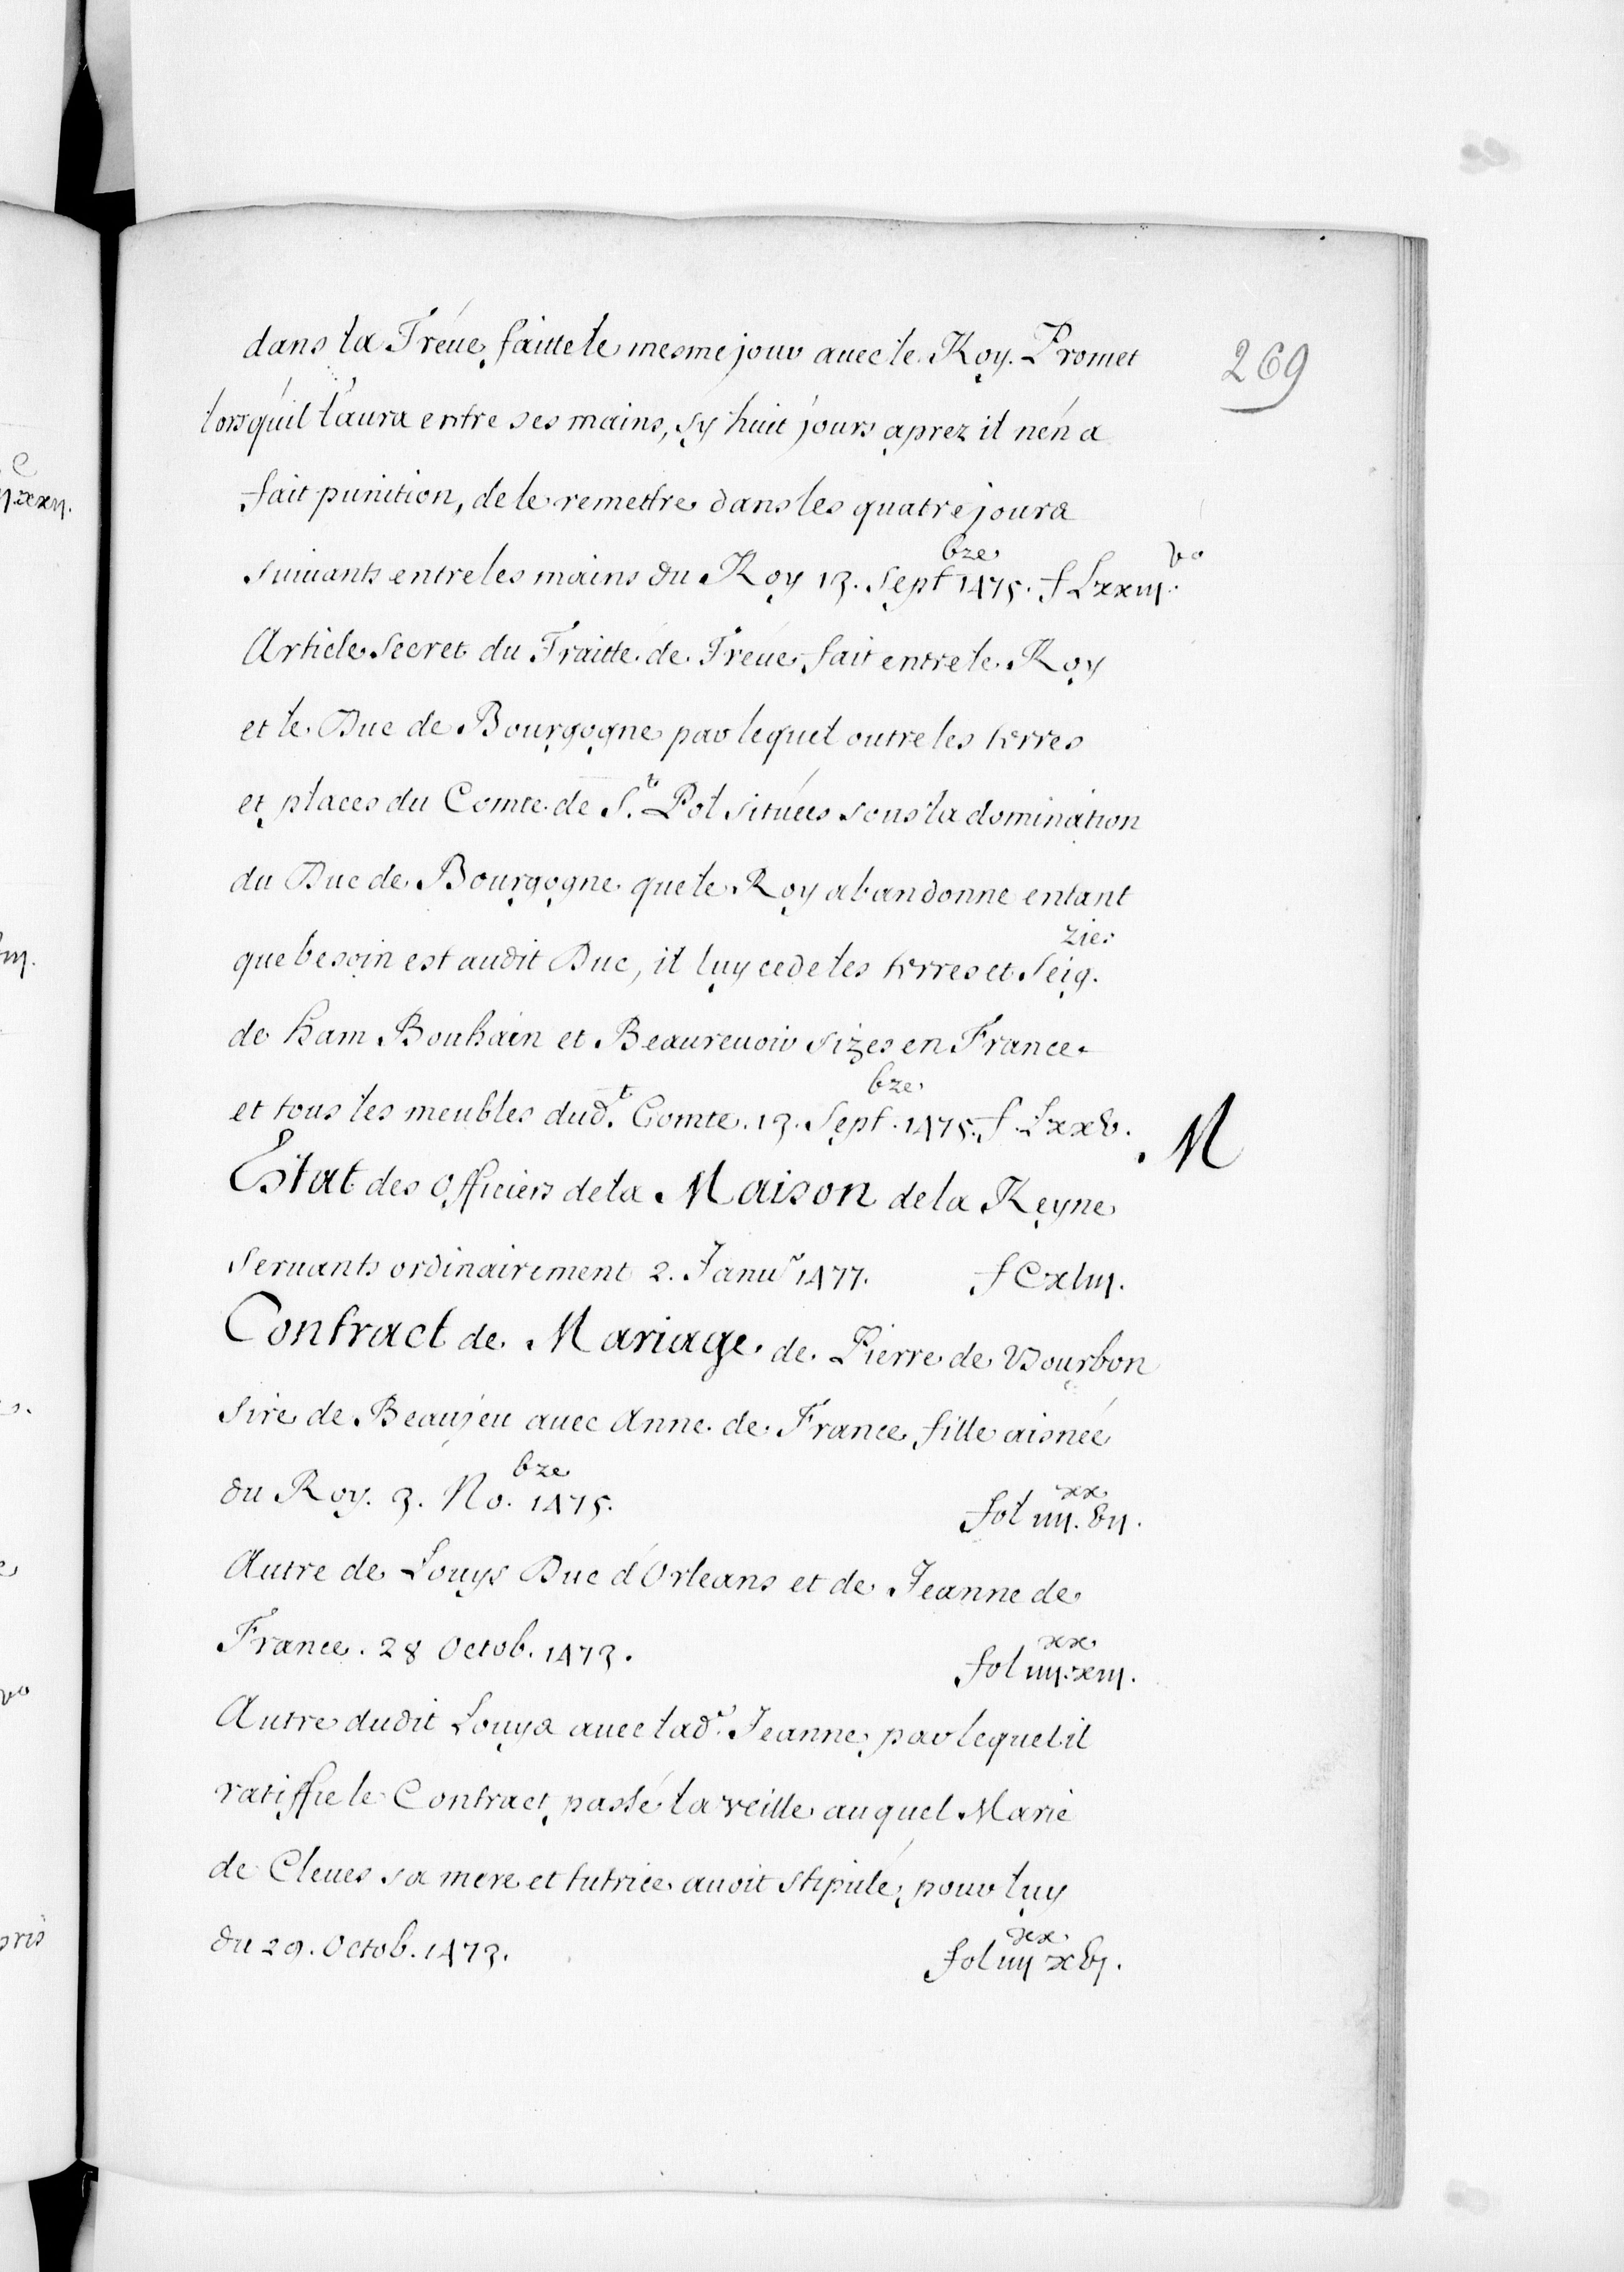 dans la Tréue faitte le mesme jour auec le Roy. Promet
269
lorsqu'il l'aura entre ses mains, sy huit jours aprez il n'en a
fait punition, de le remettre dans les quatre jours
suiuants entre les mains du Roy 13. Septbre 1475. f Lxxiij. vo
Article Secret du Traitté de Tréue fait entre le Roy
et le Duc de Bourgogne par lequel outre les terres
et places du Comte de St. Pol situées sous la domination
du Duc de Bourgogne que le Roy abandonne entant
que besoin est audit Duc, il luy cede les terres et Seig.ries
de ham Bouhain et Beaureuoir sizes en France
et tous les meubles dudt. Comte. 13. Septbre. 1475. f. Lxxv.
M
Estat des Officiers de la Maison de la Reyne
Seruants ordinairement 2. Januer 1477. f Cxliij.
Contract de Mariage de Pierre de Bourbon
Sire de Beaujeu auec Anne de France fille aisnée
du Roy. 3. No.bre 1475. fol iiij.xx vij.
Autre de Louys Duc d'Orleans et de Jeanne de
France. 28 Octob. 1473. fol iiij.xx xiij.
Autre dudit Louys auec lade. Jeanne, par lequel il
ratiffie le Contract passé la veille auquel Marie
de Cleues sa mere et tutrice auoit stipulé pour luy
du 29. Octob. 1473. fol iiijxx xvj.